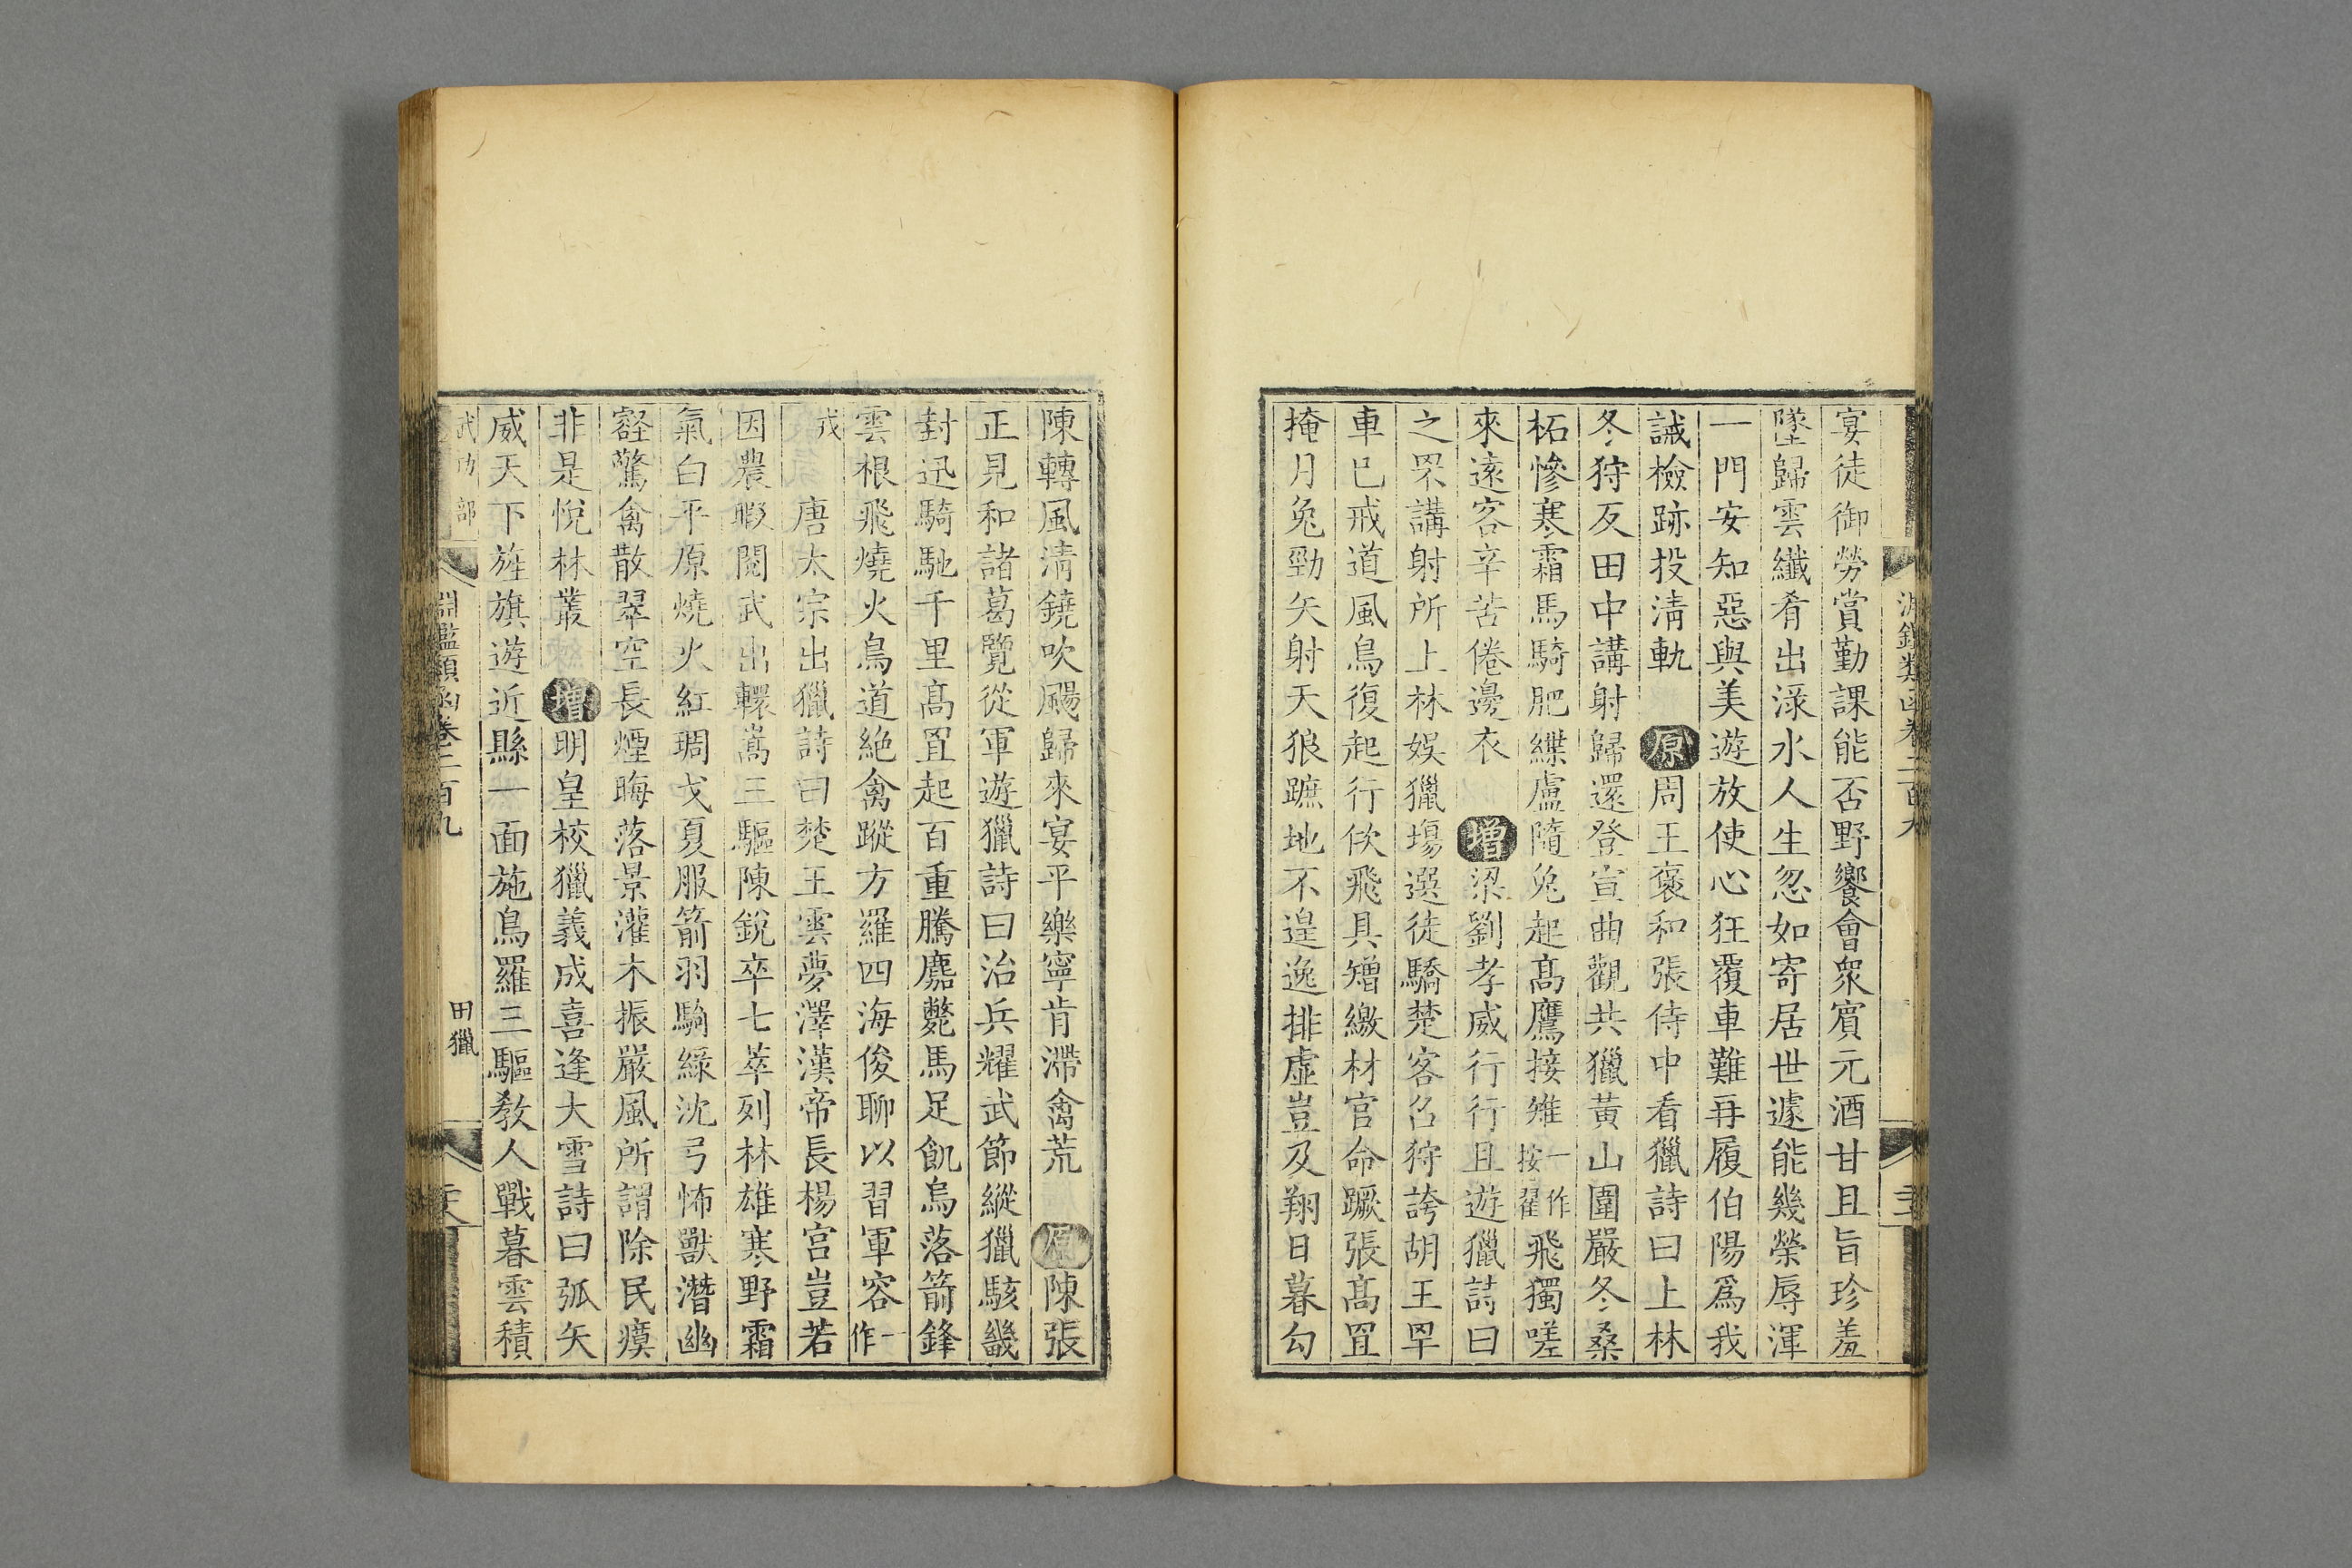 宴徒御勞賞勤課能否野饗會衆賔元酒甘且旨珍羞
墜歸雲纖肴出渌水人生忽如寄居世遽能幾榮辱渾
一門安知惡與美遊放使心狂覆車難再履伯陽爲我
誡檢跡投清軌 原周王褒和張侍中看獵詩曰上林
冬狩反田中講射歸還登宣曲觀共獵黃山圍嚴冬桑
柘慘寒霜馬騎肥緤盧隨兔起高鷹接雉一作按翟飛獨嗟
來遠客辛苦倦邊衣 增梁劉孝威行行且遊獵詩曰
之罘講射所上林娛獵場選徒驕楚客召狩誇胡王罕
車已戒道風鳥復起行佽飛具矰繳材官命蹶張高罝
掩月兔勁矢射天狼蹠地不遑逸排虛豈及翔日暮勾
陳轉風清鐃吹颺歸來宴平樂寧肯滯禽荒 原陳張
正見和諸葛覽從軍遊獵詩曰治兵耀武節縱獵駭畿
封迅騎馳千里高罝起百重騰麏斃馬足飢烏落箭鋒
雲根飛燒火鳥道絕禽蹤方羅四海俊聊以習軍容一作
戎 唐太宗出獵詩曰楚王雲夢澤漢帝長楊宮豈若
因農暇閱武出轘嵩三驅陳銳卒七萃列林雄寒野霜
氣白平原燒火紅琱戈夏服箭羽騎綠沈弓怖獸潛幽
壑驚禽散翠空長煙晦落景灌木振嚴風所謂除民瘼
非是悅林叢 增明皇校獵義成喜逢大雪詩曰弧矢
威天下旌旗遊近縣一面施鳥羅三驅教人戰暮雲積
武功部
淵鑑類函卷二百九
田獵